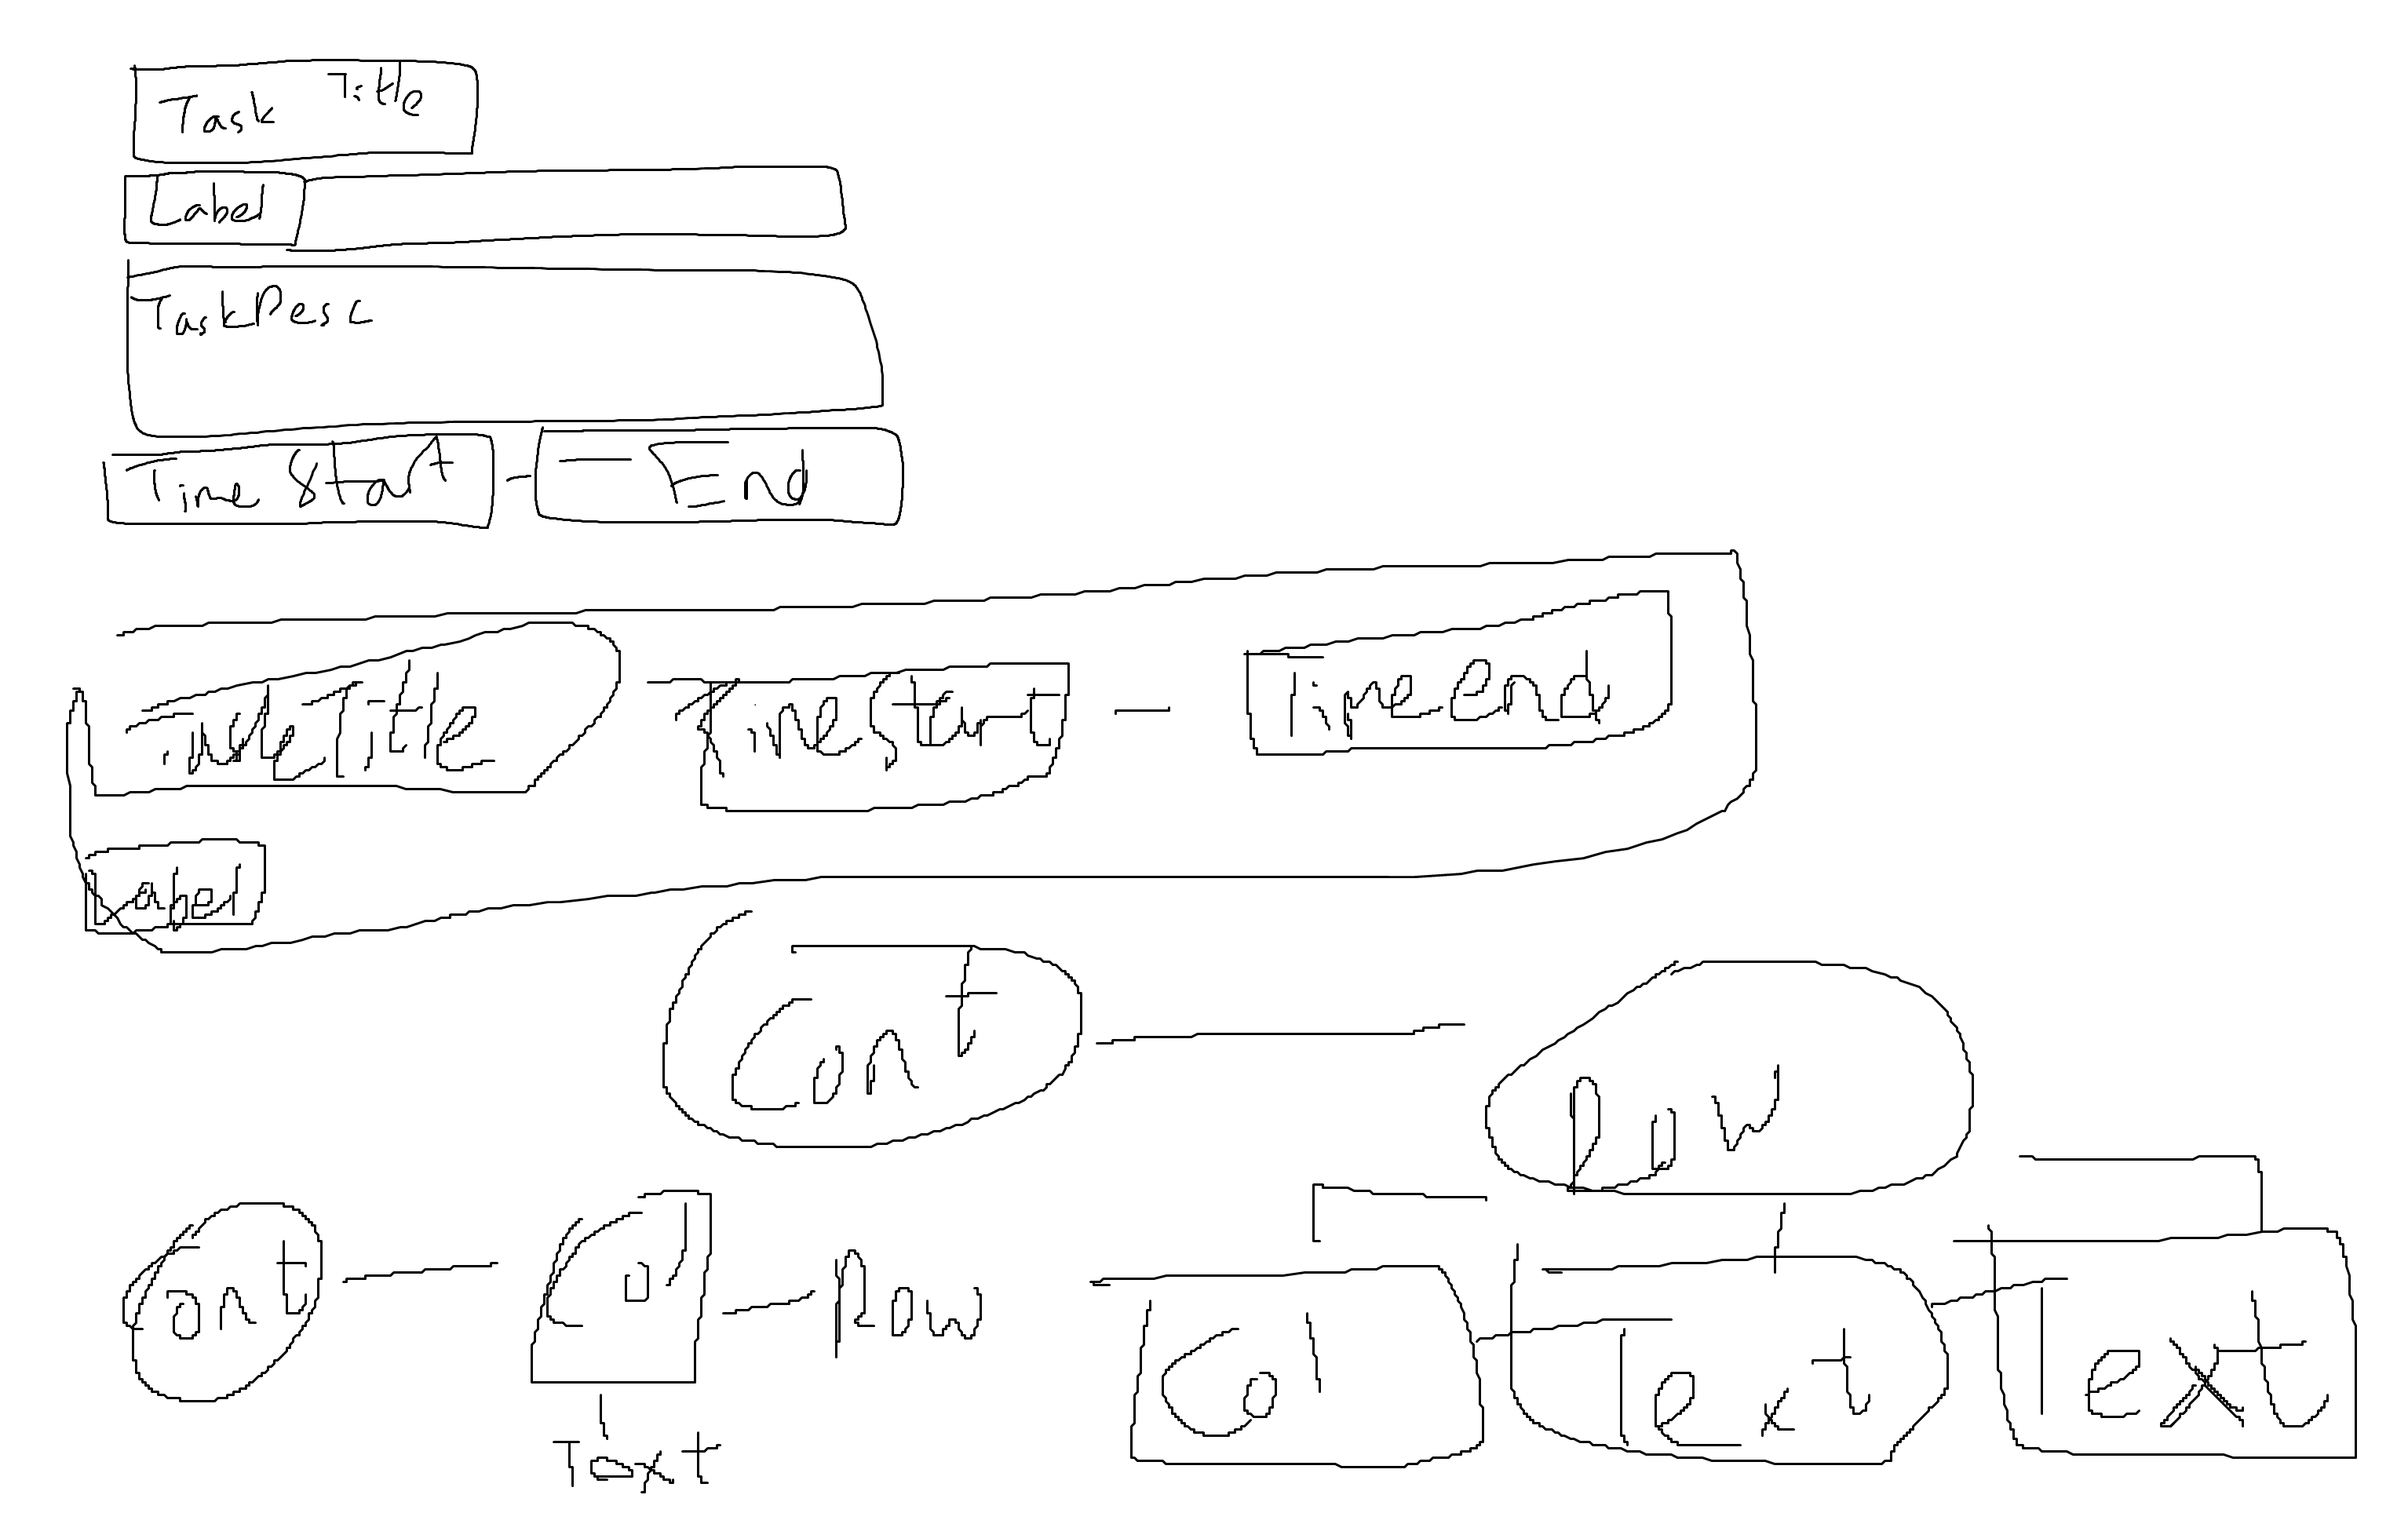 Task Title
Label
TaskDesc
Time Start - End
Title TimeStart - Time end
Label
Cont
Row
Cont Col Row Col Text Text
Text